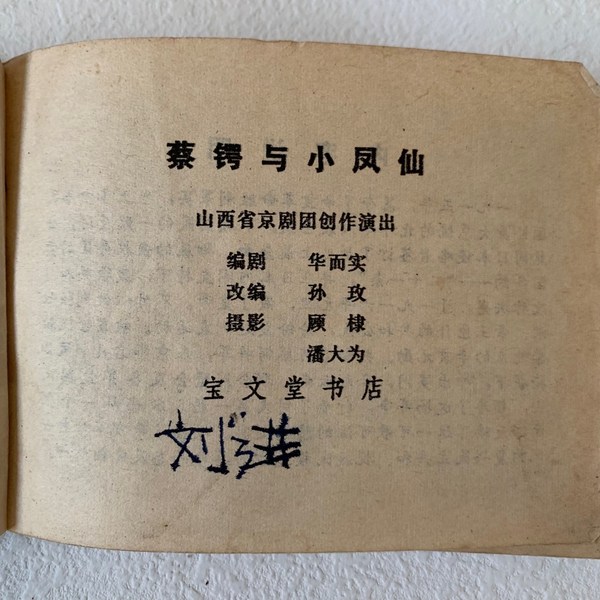 蔡锷与小凤仙
山西省京剧团创作演出
编剧 华而实
改编 孙玫
摄影 顾棣
潘大为
宝文堂书店